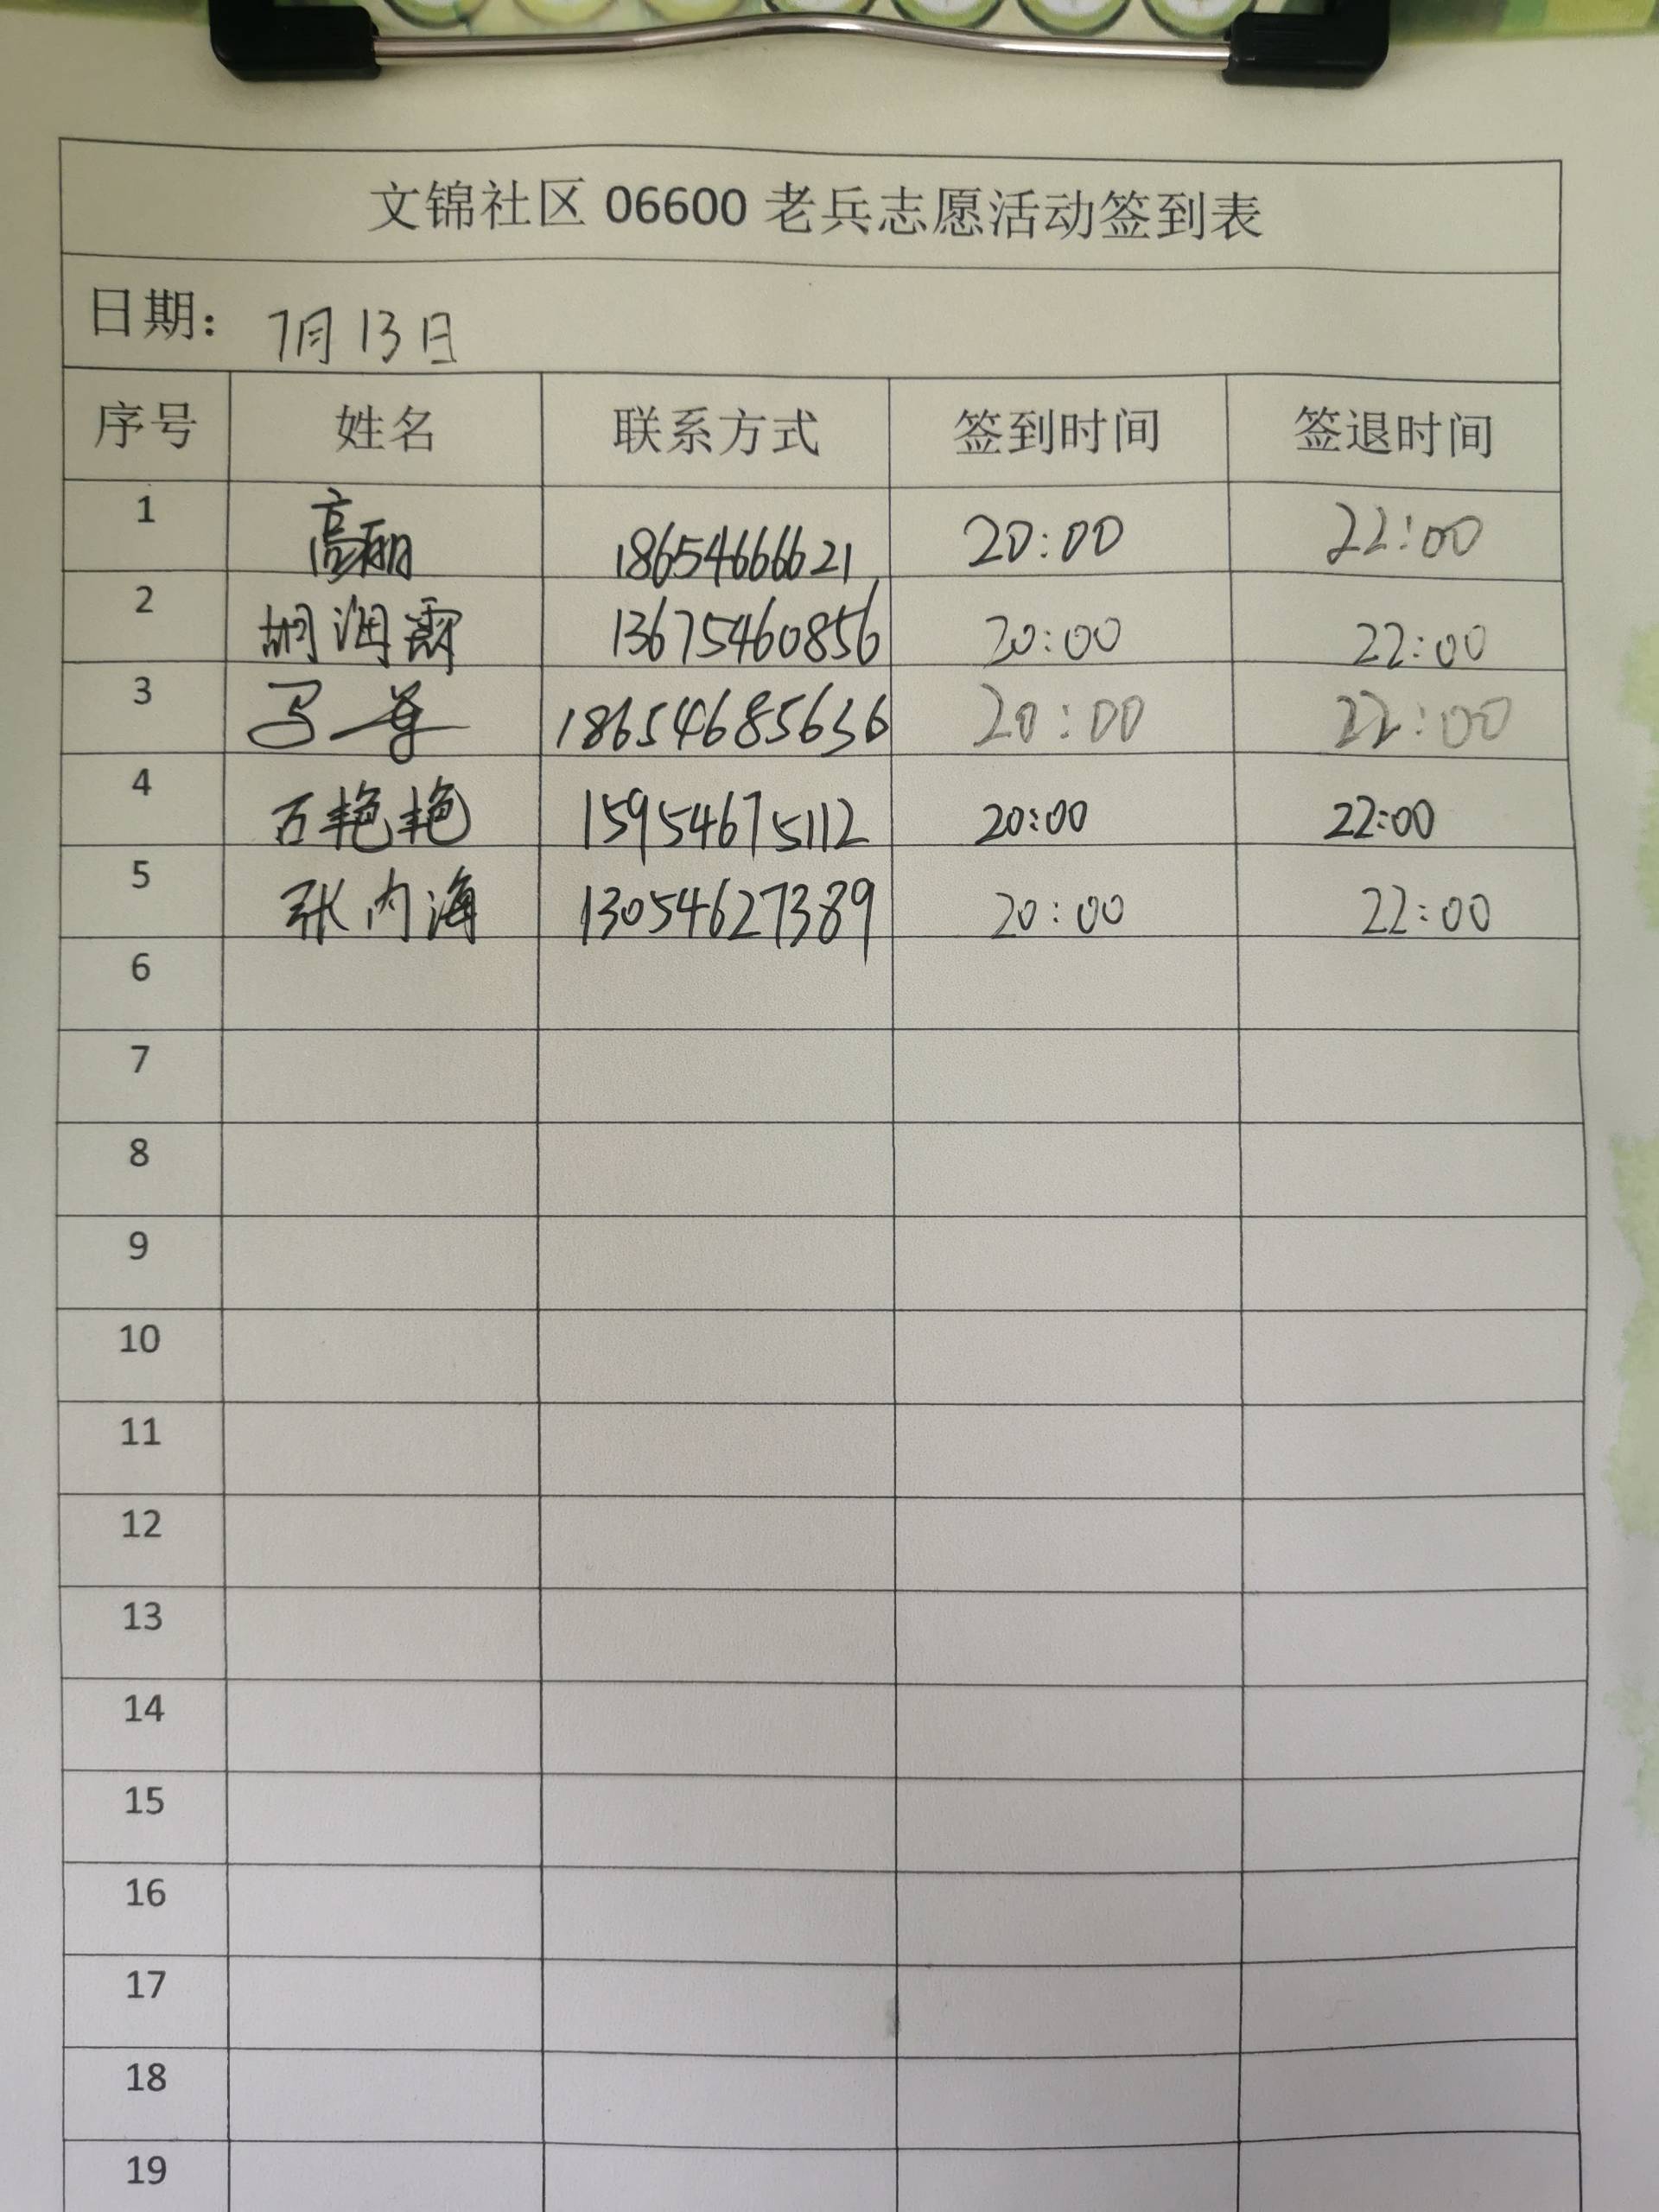 文锦社区 06600 老兵志愿活动签到表
日期： 7月13日
序号 姓名 联系方式 签到时间 签退时间
1 高丽 18654666621 20:00 22:00
2 胡润霞 13675460856 20:00 22:00
3 18654685636 20:00 22:00
4 石艳艳 15954675112 20:00 22:00
5 张内海 13054627389 20:00 22:00
6
7
8
9
10
11
12
13
14
15
16
17
18
19